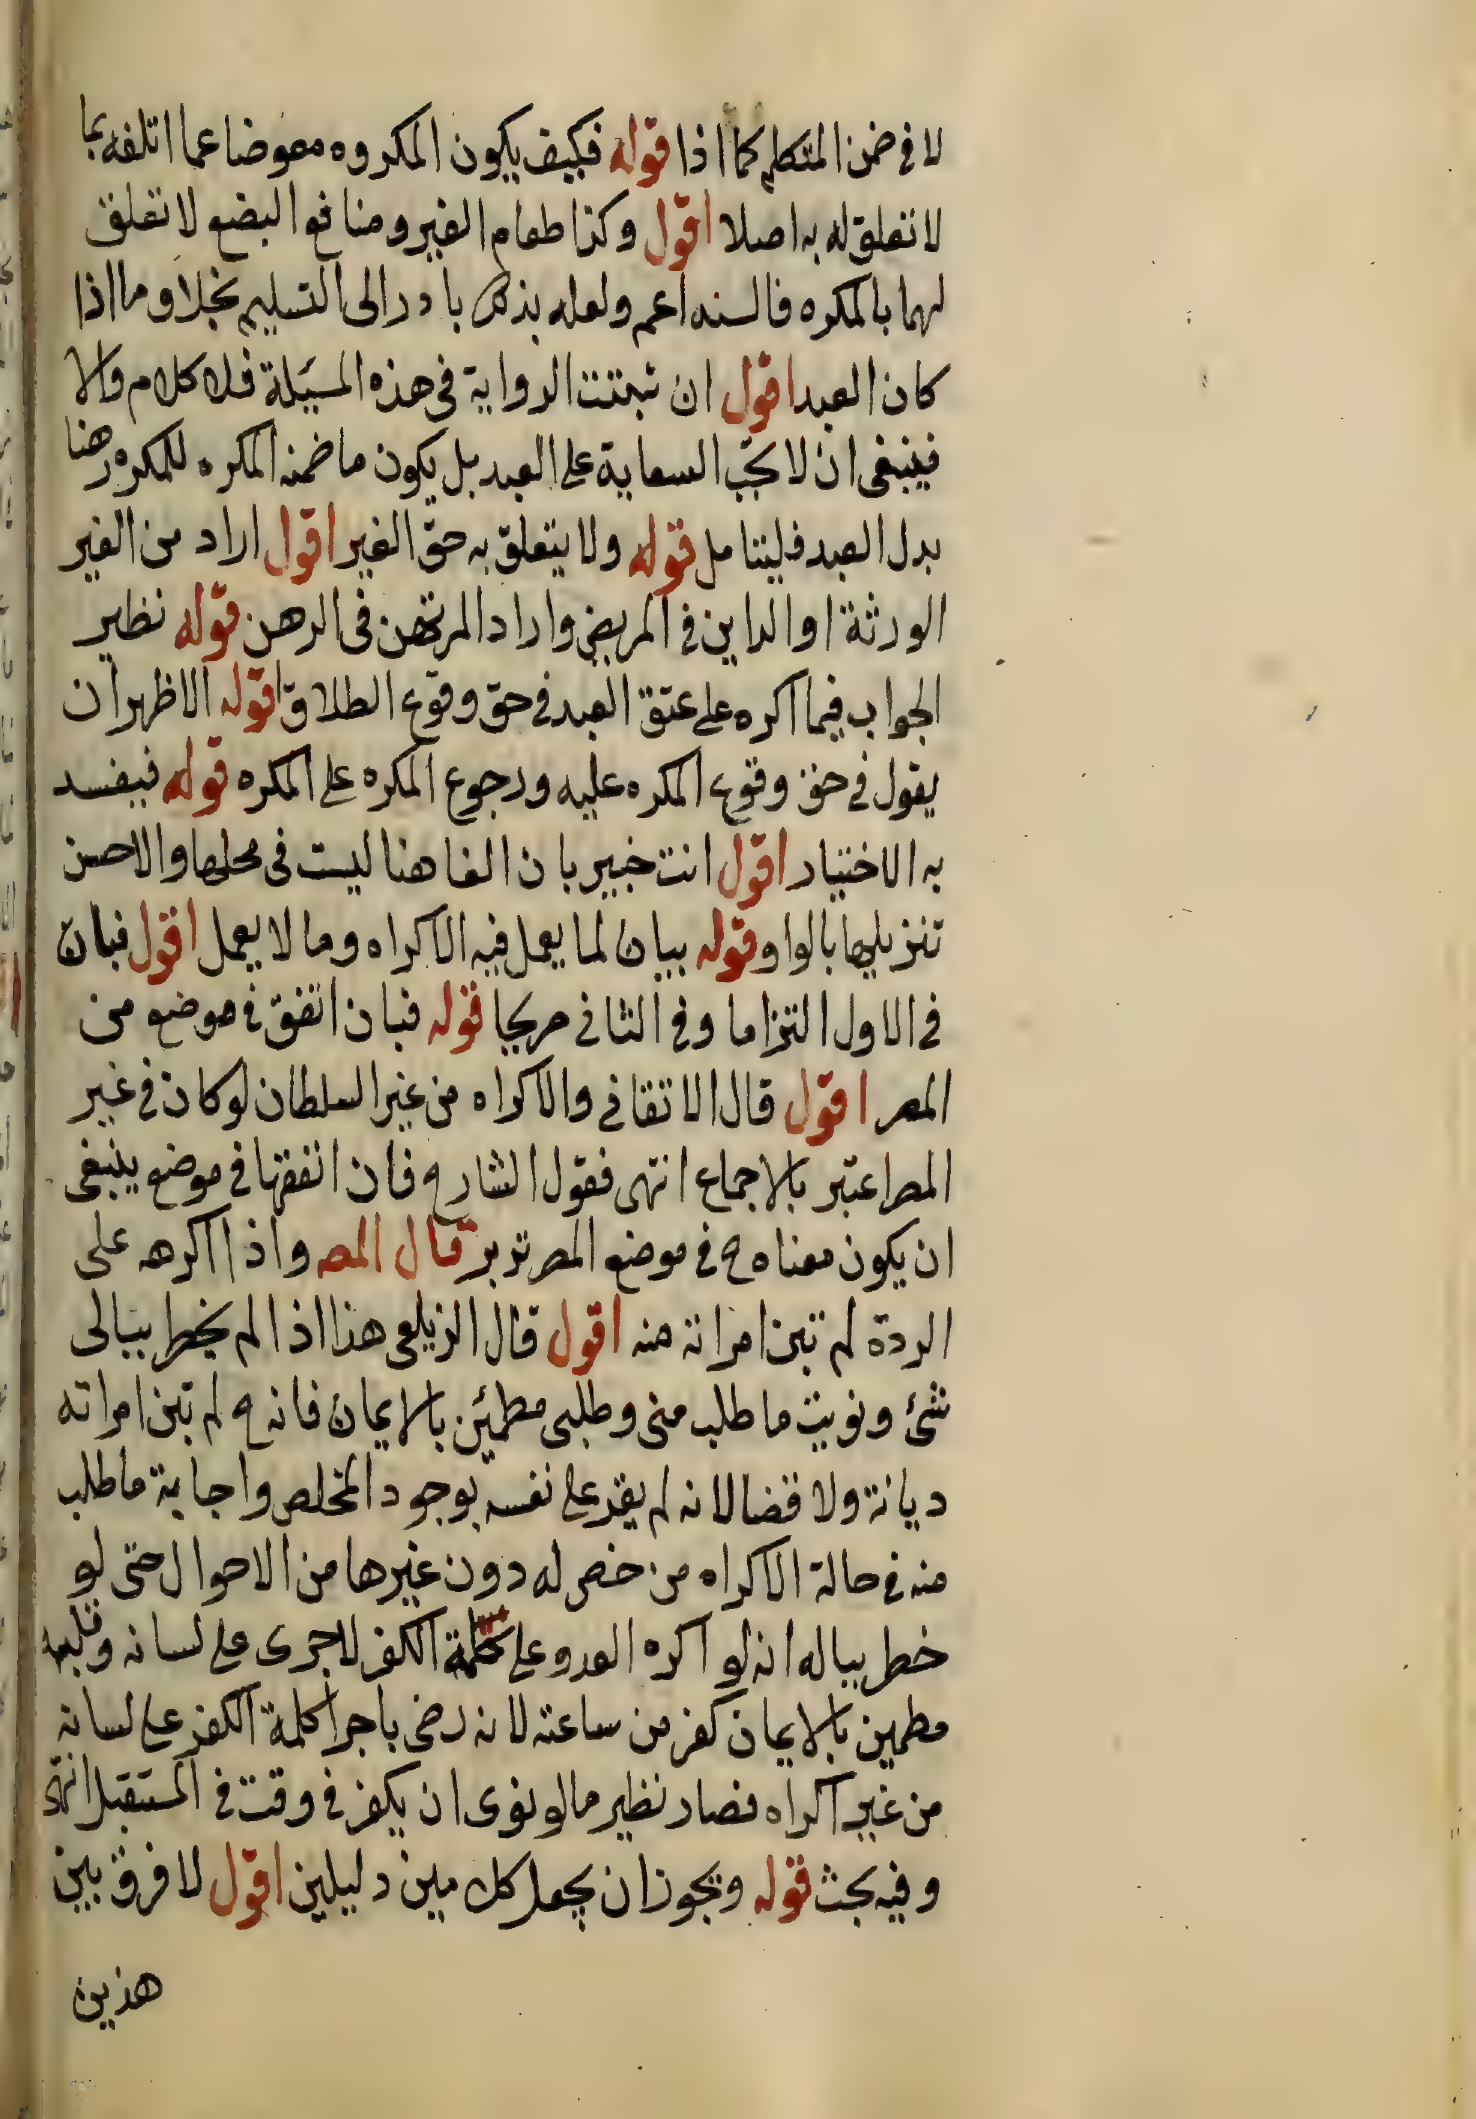 لا فى ضمن المتكلم كما اذا قوله فكيف يكون المكروه معوضا عما اتلفه بما
لا تعلق له به اصلا اقول وكذا طعام الغير ومنافع البضع لا تعلق
لهما بالمكره فالسنه اعم ولعله بذلك بادر الى التسليم بخلاف ما اذا
كان العبد اقول ان ثبتت الرواية فى هذه المسئلة فلا كلام والا
فينبغى ان لا تجب السعاية على العبد بل يكون ما ضمنه المكره للمكره رهنا
بدل العبد فليتامل قوله ولا يتعلق به حق الغير اقول اراد من الغير
الورثة او الداين فى المريض واراد المرتهن فى الرهن قوله نظير
الجواب فيما اكره على عتق العبد فى حق وقوع الطلاق اقوله الاظهر ان
يقول فى حق وقوع المكره عليه ورجوع المكره على المكره قوله فيفسد
به الاختيار اقول انت خبير بان الفا هنا ليست فى محلها والاحسن
تنزيلها بالواو قوله بيان لما يعمل فيه الاكراه وما لا يعمل اقول فبان
فى الاول التزاما وفى الثانى صريحا قوله فبان اتفق فى موضع من
المصر اقول قال الاتقانى والاكراه من غير السلطان لو كان فى غير
المصر اعتبر بالاجماع انتهى فقول الشارح فان اتفقها فى موضع ينبغى
ان يكون معناه ح فى موضع المصر تدبر قال المص واذا اكره على
الردة لم تبن امراته منه اقول قال الزيلعى هذا اذا لم يخطر ببالى
شئ ونويت ما طلب منى وطلبى مطمئن بالايمان فانه ح لم تبن امراته
ديانة ولا قضا لانه لم يقر على نفسه بوجود المخلص واجابة ما طلب
منه فى حالة الاكراه من خصر له دون غيرها من الاحوال حتى لو
خطر بباله انه لو اكره العدو على كلمة الكفر لاجرى على لسانه وقلبه
مطمين بالايمان كفر من ساعته لانه رضى باجرا كلمة الكفر على لسانه
من غير اكراه فصار نظير ما لو نوى ان يكفر فى وقت فى المستقبل انتهى
وفيه بحث قوله ويجوز ان يجعل كل مين دليلين اقول لا فرق بين
هذين